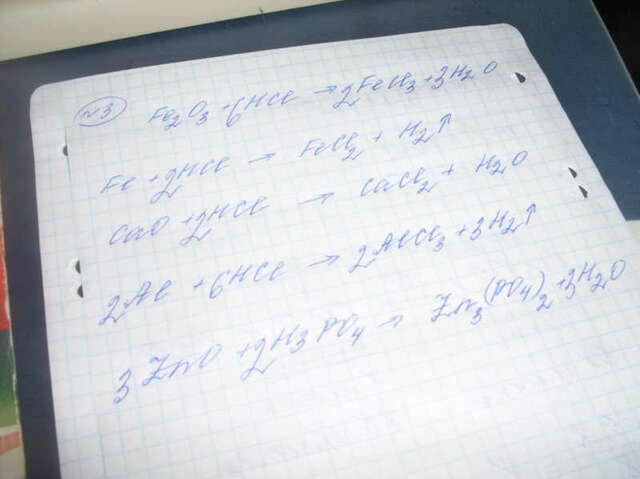 №3 Fe₂O₃ + 6HCl → 2FeCl₃ + 3H₂O
Fe + 2HCl → FeCl₂ + H₂↑
CaO + 2HCl → CaCl₂ + H₂O
2Al + 6HCl → 2AlCl₃ + 3H₂↑
3ZnO + 2H₃PO₄ → Zn₃(PO₄)₂ + 3H₂O